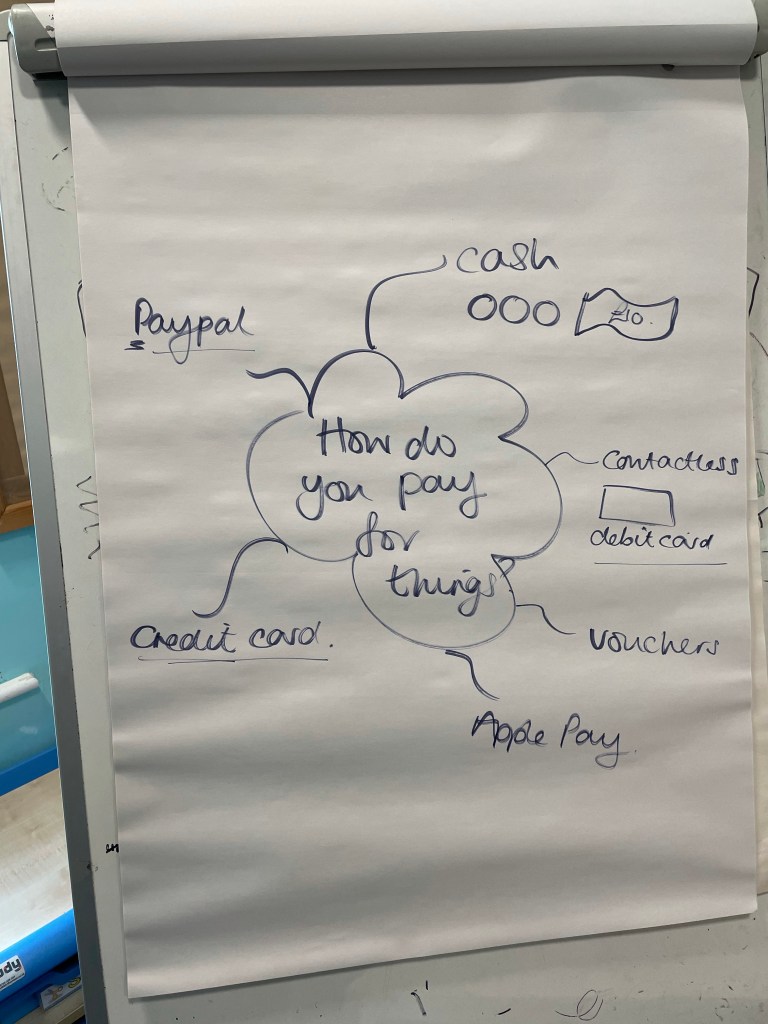 cash
£10.
Paypal
How do
you pay
for
things?
contactless
debit card
Credit card.
vouchers
Apple Pay.